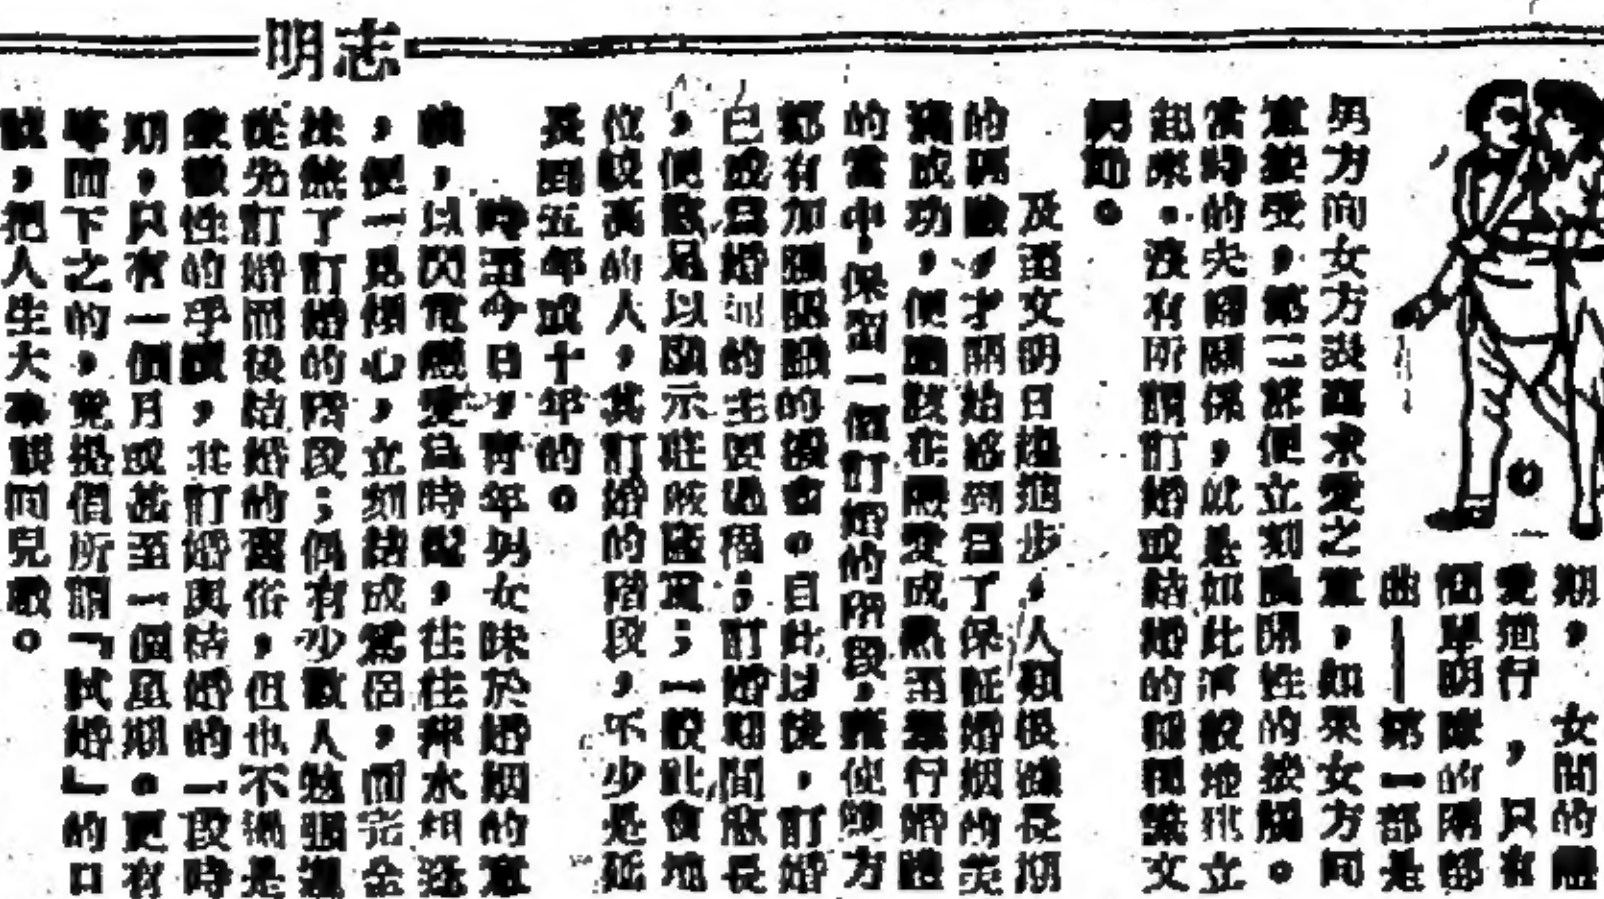 志明
期，女間的戀
愛進行，只有
簡單明瞭的兩部
曲——第一部是
男方向女方表示求愛之意，如果女方同
意接受，第二部便立刻展開性的接觸。
當時的夫婦關係，就是如此這般地建立
起來。沒有所謂訂婚或結婚的種種繁文
及至文明日趨進步，人類從漫長期
的經驗，才開始感到為了保証婚姻的美
滿成功，便應該在戀愛成熟至舉行婚禮
的當中，保留一個訂婚的階段，藉使雙方
都有加深認識的機會。自此以後，訂婚
已成為婚制的主要過程；訂婚期間愈長
，便愈足以顯示莊嚴隆重；一般社會地
位較高的人，其訂婚的階段，不少是延
長到五年或十年的。
時至今日，青年男女昧於婚姻的意
義，以閃電戀愛為時髦，往往萍水相逢
，便一見傾心，立刻結成鴛侶，而完全
抹煞了訂婚的階段；偶有少數人勉強遵
從先訂婚而後結婚的舊俗，但也不過是
敷衍性的手續，其訂婚與結婚的一段時
期，只有一個月或甚至一個星期。更有
等而下之的，竟提倡所謂「試婚」的口
號，把人生大事視同兒戲。